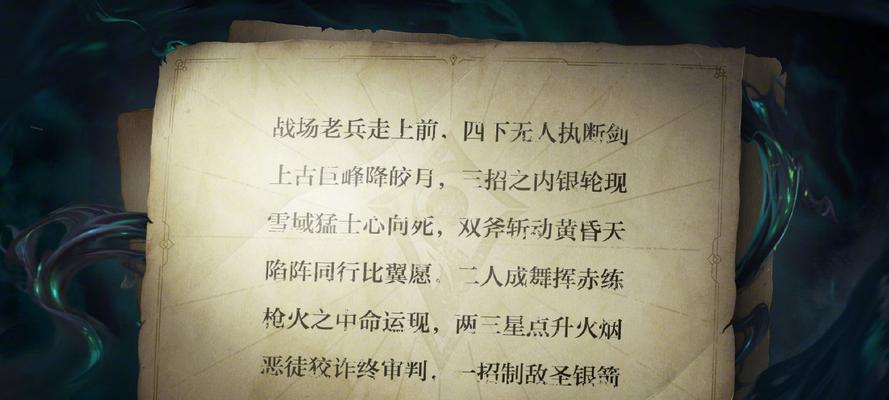 战场老兵走上前，四下无人执断剑
上古巨峰降皎月，三招之内银轮现
雪域猛士心向死，双斧斩动黄昏天
陷阵同行比翼愿。二人成舞挥赤练
枪火之中命运现，两三星点升火烟
恶徒狡诈终审判，一招制敌圣银箭